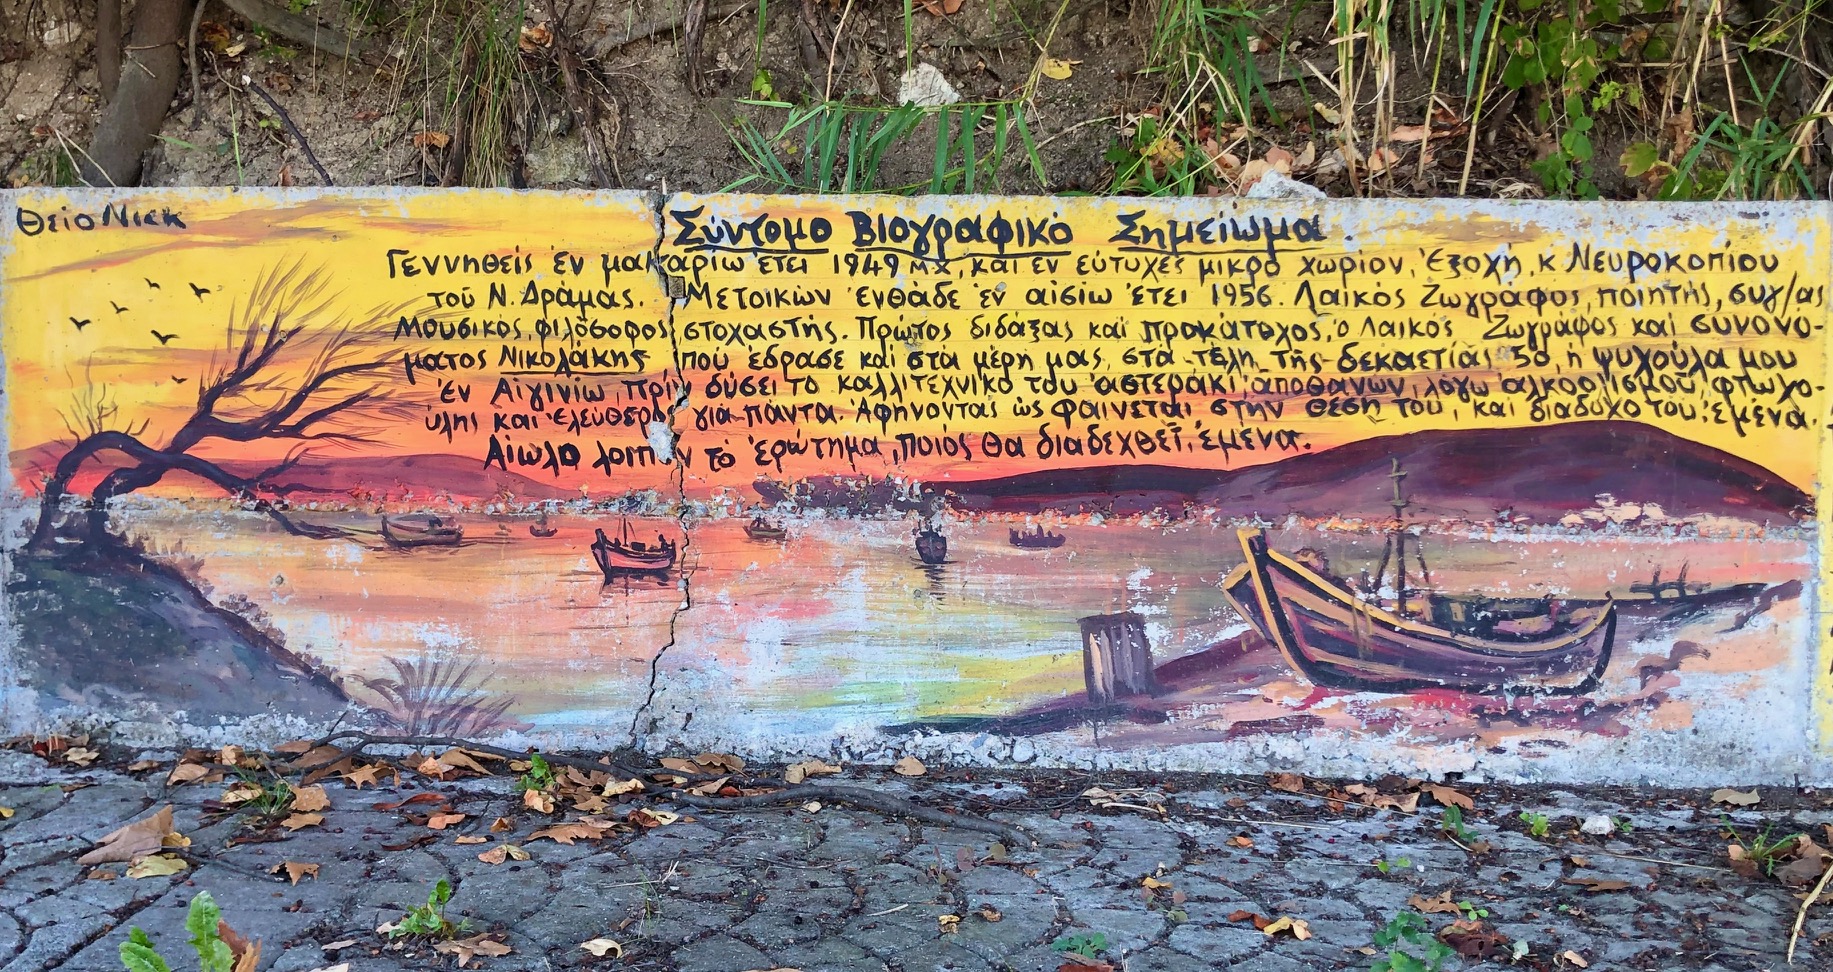 Θείο Νικκ
Σύντομο Βιογραφικό Σημείωμα.
Γεννηθείς ἐν μακαρίω ἔτει 1949 μ.χ, και ἐν εὐτυχές μικρό χωρίον, Ἐξοχή, κ Νευροκοπίου
τοῦ Ν. Δράμας. Μετοικών ἐνθάδε ἐν αἰσίω ἔτει 1956. Λαικός Ζωγράφος, ποιητής, συγ/ας
Μουσικός, φιλόσοφος, στοχαστής. Πρῶτος διδάξας και προκάτοχος, ὁ Λαικός Ζωγράφος και συνονό-
ματος Νικολάκης που ἔδρασε και στα μέρη μας, στα τέλη της δεκαετίας 50, ἡ ψυχούλα μου
ἐν Αἰγινίω, πρίν δύσει το καλλιτεχνικό του ἀστεράκι, ἀποθανων, λόγω ἀλκοολισμοῦ, φτωχο-
ύλης και ἐλεύθερος για πάντα. Ἀφήνοντας ὡς φαίνεται στην θέση του, και διαδοχο του: εμένα.
Αἰωλο λοιπόν τὸ ἐρώτημα, ποιός θα διαδεχθεῖ, ἐμένα.